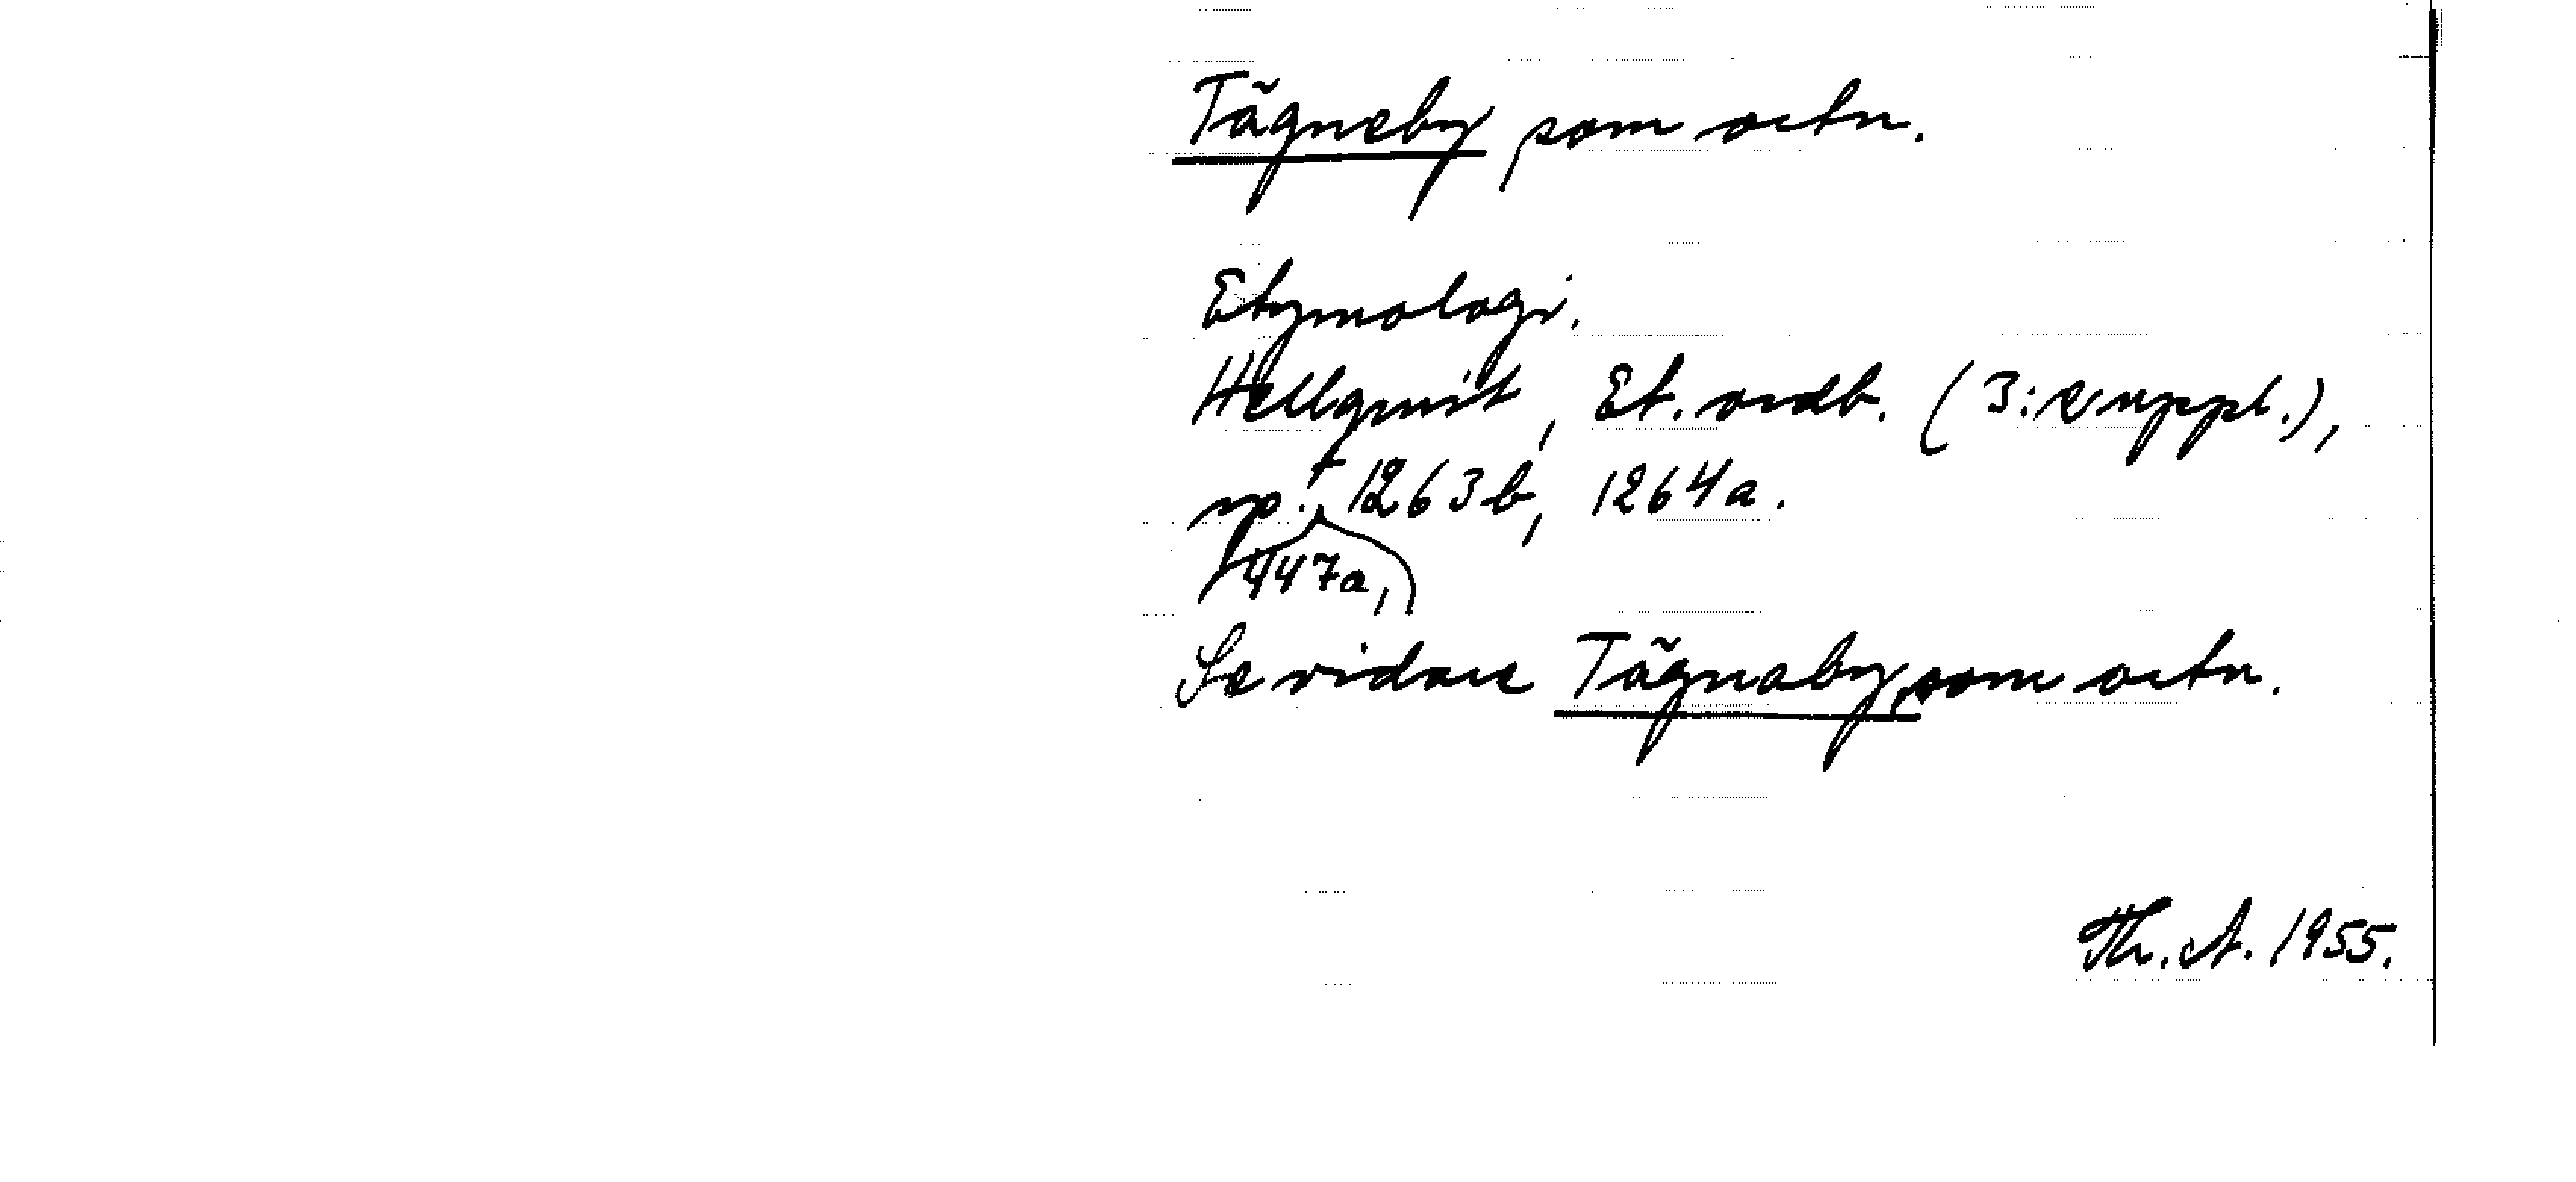 Tägneby som ortn.
Etymologi.
Hellquist, Et. ordb. (3:e uppl.),
sp. 1263b, 1264a.
447a,
Se vidare Tägnaby, som ortn.
Th. A. 1955.